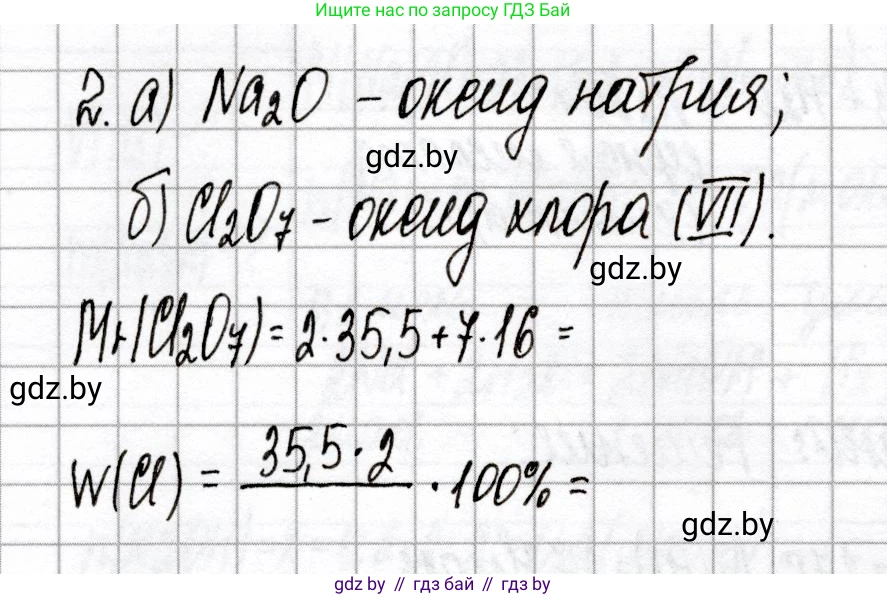 Ищите нас по запросу ГДЗ Бай
2. а) Na₂O – оксид натрия;
gdz.by
б) Cl₂O₇ – оксид хлора (VII).
gdz.by
Mr(Cl₂O₇) = 2·35,5+7·16 =
gdz.by
W(Cl) = 35,5·2 / · 100% =
gdz.by
gdz.by // гдз бай // гдз by